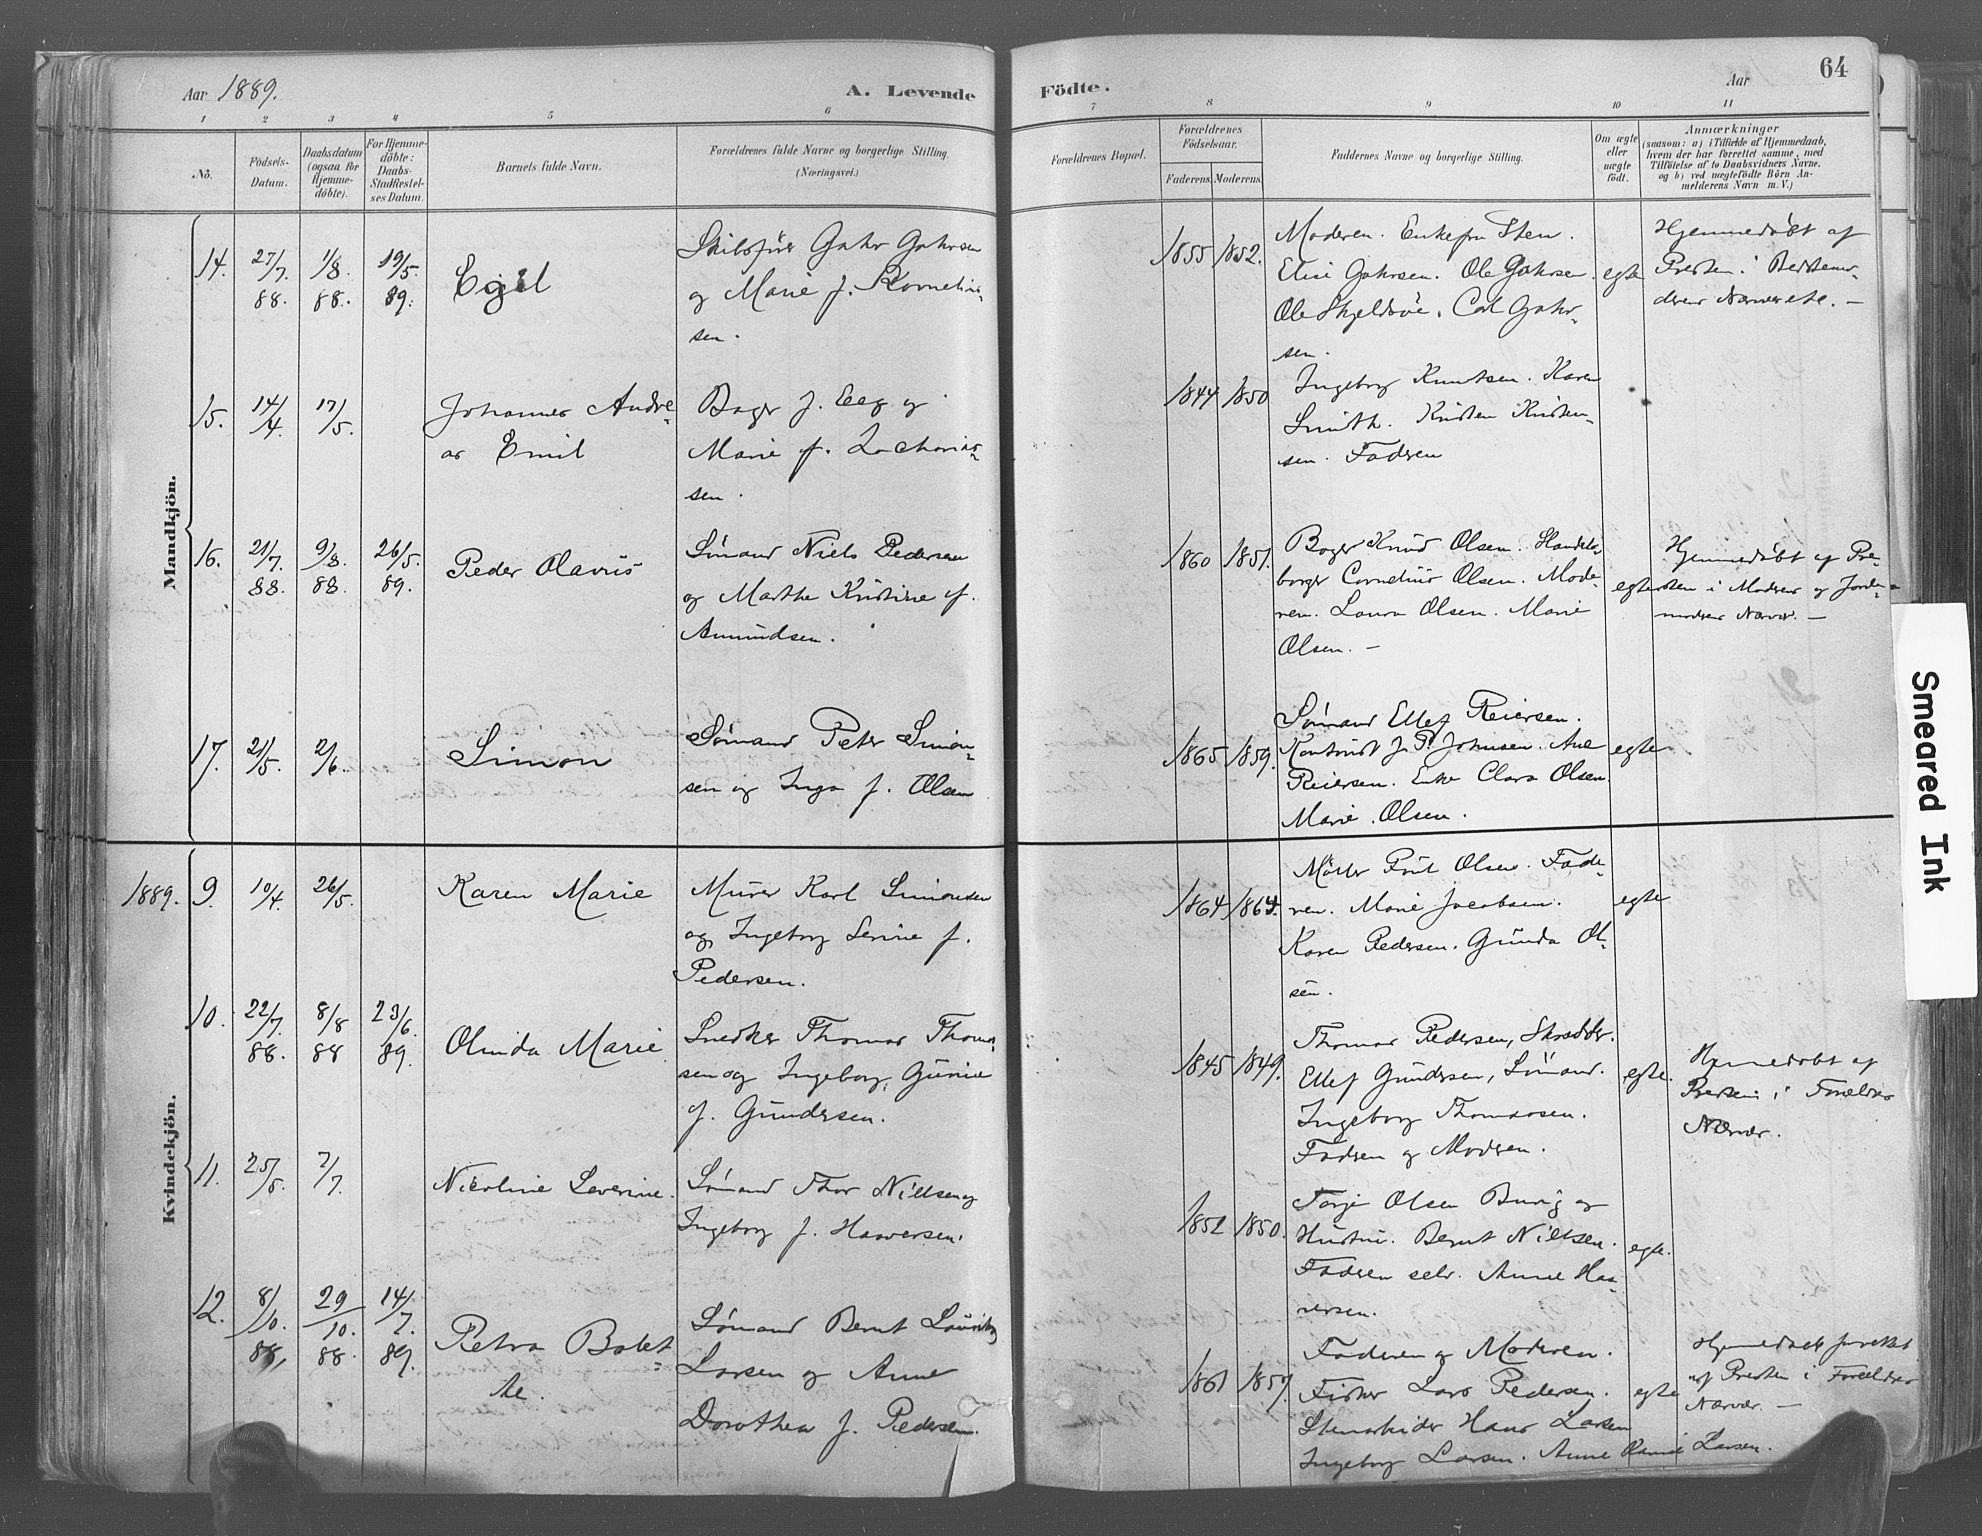 Aar 1889.
A. Levende
Födte.
Aar
64
1 2 3 4 5 6 7 8 9 10 11
No.
Födsels-
Datum.
Daabsdatum
(ogsaa for
Hjemme-
döbte).
For Hjemme-
döbte:
Daabs-
Stadfæstel-
ses Datum.
Barnets fulde Navn.
Forældrenes fulde Navne og borgerlige Stilling.
(Næringsvei.)
Forældrenes Bopæl.
Forældrenes
Födselsaar.
Faderens. Moderens.
Faddernes Navne og borgerlige Stilling.
Om ægte
eller
uægte
födt.
Anmærkninger
(saasom: a) i Tilfælde af Hjemmedaab,
hvem der har forrettet samme, med
Tilföielse af to Daabsvidners Navne.
og b) ved uægtefödte Börn An-
melderens Navn m. V.)
Mandkjön.
14. 27/7. 88. 1/8. 88. 19/5. 89.
Egil
Skibsfører Gahr Gahrsen
og Marie f. Kornelius-
sen.
1855 1852.
Moderen. Enkefru Sten.
Elise Gahrsen. Ole Gahrsen.
Ole Skjeldsøe. Carl Gahr-
sen.
egte
Hjemmedøbt af
Presten i Bedstemo-
derens Nærværelse. —
15. 14/4. 17/5.
Johannes Andre-
as Emil
Bager J. Eeg og
Marie f. Zacharias-
sen.
1844 1850
Ingeborg Knutsen. Karen
Smith. Kristen Kristen-
sen. Faderen
16. 21/7. 88. 9/8. 88. 26/5. 89.
Peder Olavus
Sømand Niels Pedersen
og Marthe Kristine f.
Amundsen.
1860 1851.
Bager Knud Olsen. Handels-
borger Cornelius Olsen. Mode-
ren. Laura Olsen. Marie
Olsen. —
egte
Hjemmedøbt af Pre-
sten i Moderens og Jorde-
moderens Nærvær. —
17. 21/5. 2/6.
Simon
Sømand Peter Simon-
sen og Inga f. Olsen
1865 1859.
Sømand Ellef Reiersen.
J. P. Johnsen. Ane
Reiersen. Enke Clara Olsen.
Marie Olsen.
egte
Kvindekjön.
1889. 9. 10/4. 26/5.
Karen Marie
Murer Karl Simonsen
og Ingeborg Serine f.
Pedersen.
1864 1864.
Olsen. Fade-
ren. Marie Jacobsen.
Karen Pedersen. Gunda Ol-
sen.
egte
10. 22/7. 88. 8/8 88 23/6. 89.
Olinda Marie
Snedker Thomas Thomas-
sen og Ingeborg Gurine
f. Gundersen.
1845 1849.
Thomas Pedersen, Skrædder.
Ellef Gundersen, Sømand.
Ingeborg Thomassen.
Faderen og Moderen.
egte.
Hjemmedøbt af
Presten i Forældres
Nærvær.
11. 25/5. 7/7.
Nicoline Severine.
Sømand Thor Nilsen og
Ingeborg f. Haaversen.
1852 1850.
Torje Olsen Buvig og
Hustru. Bernt Nilsen.
Faderen selv. Anne Haa-
versen.
egte.
12. 8/10. 88, 29/10. 88 14/7. 89.
Petra Bolet-
te.
Sømand Bernt Lauritz
Larsen og Anne
Dorothea f. Pedersen.
1861 1857.
Faderen og Moderen.
Fisker Lars Pedersen.
Stenarbeider Hans Larsen
Ingeborg Larsen. Anne Larsen.
egte
Hjemmedaab forrettet
af Presten i Forældres
Nærvær. —
Smeared Ink